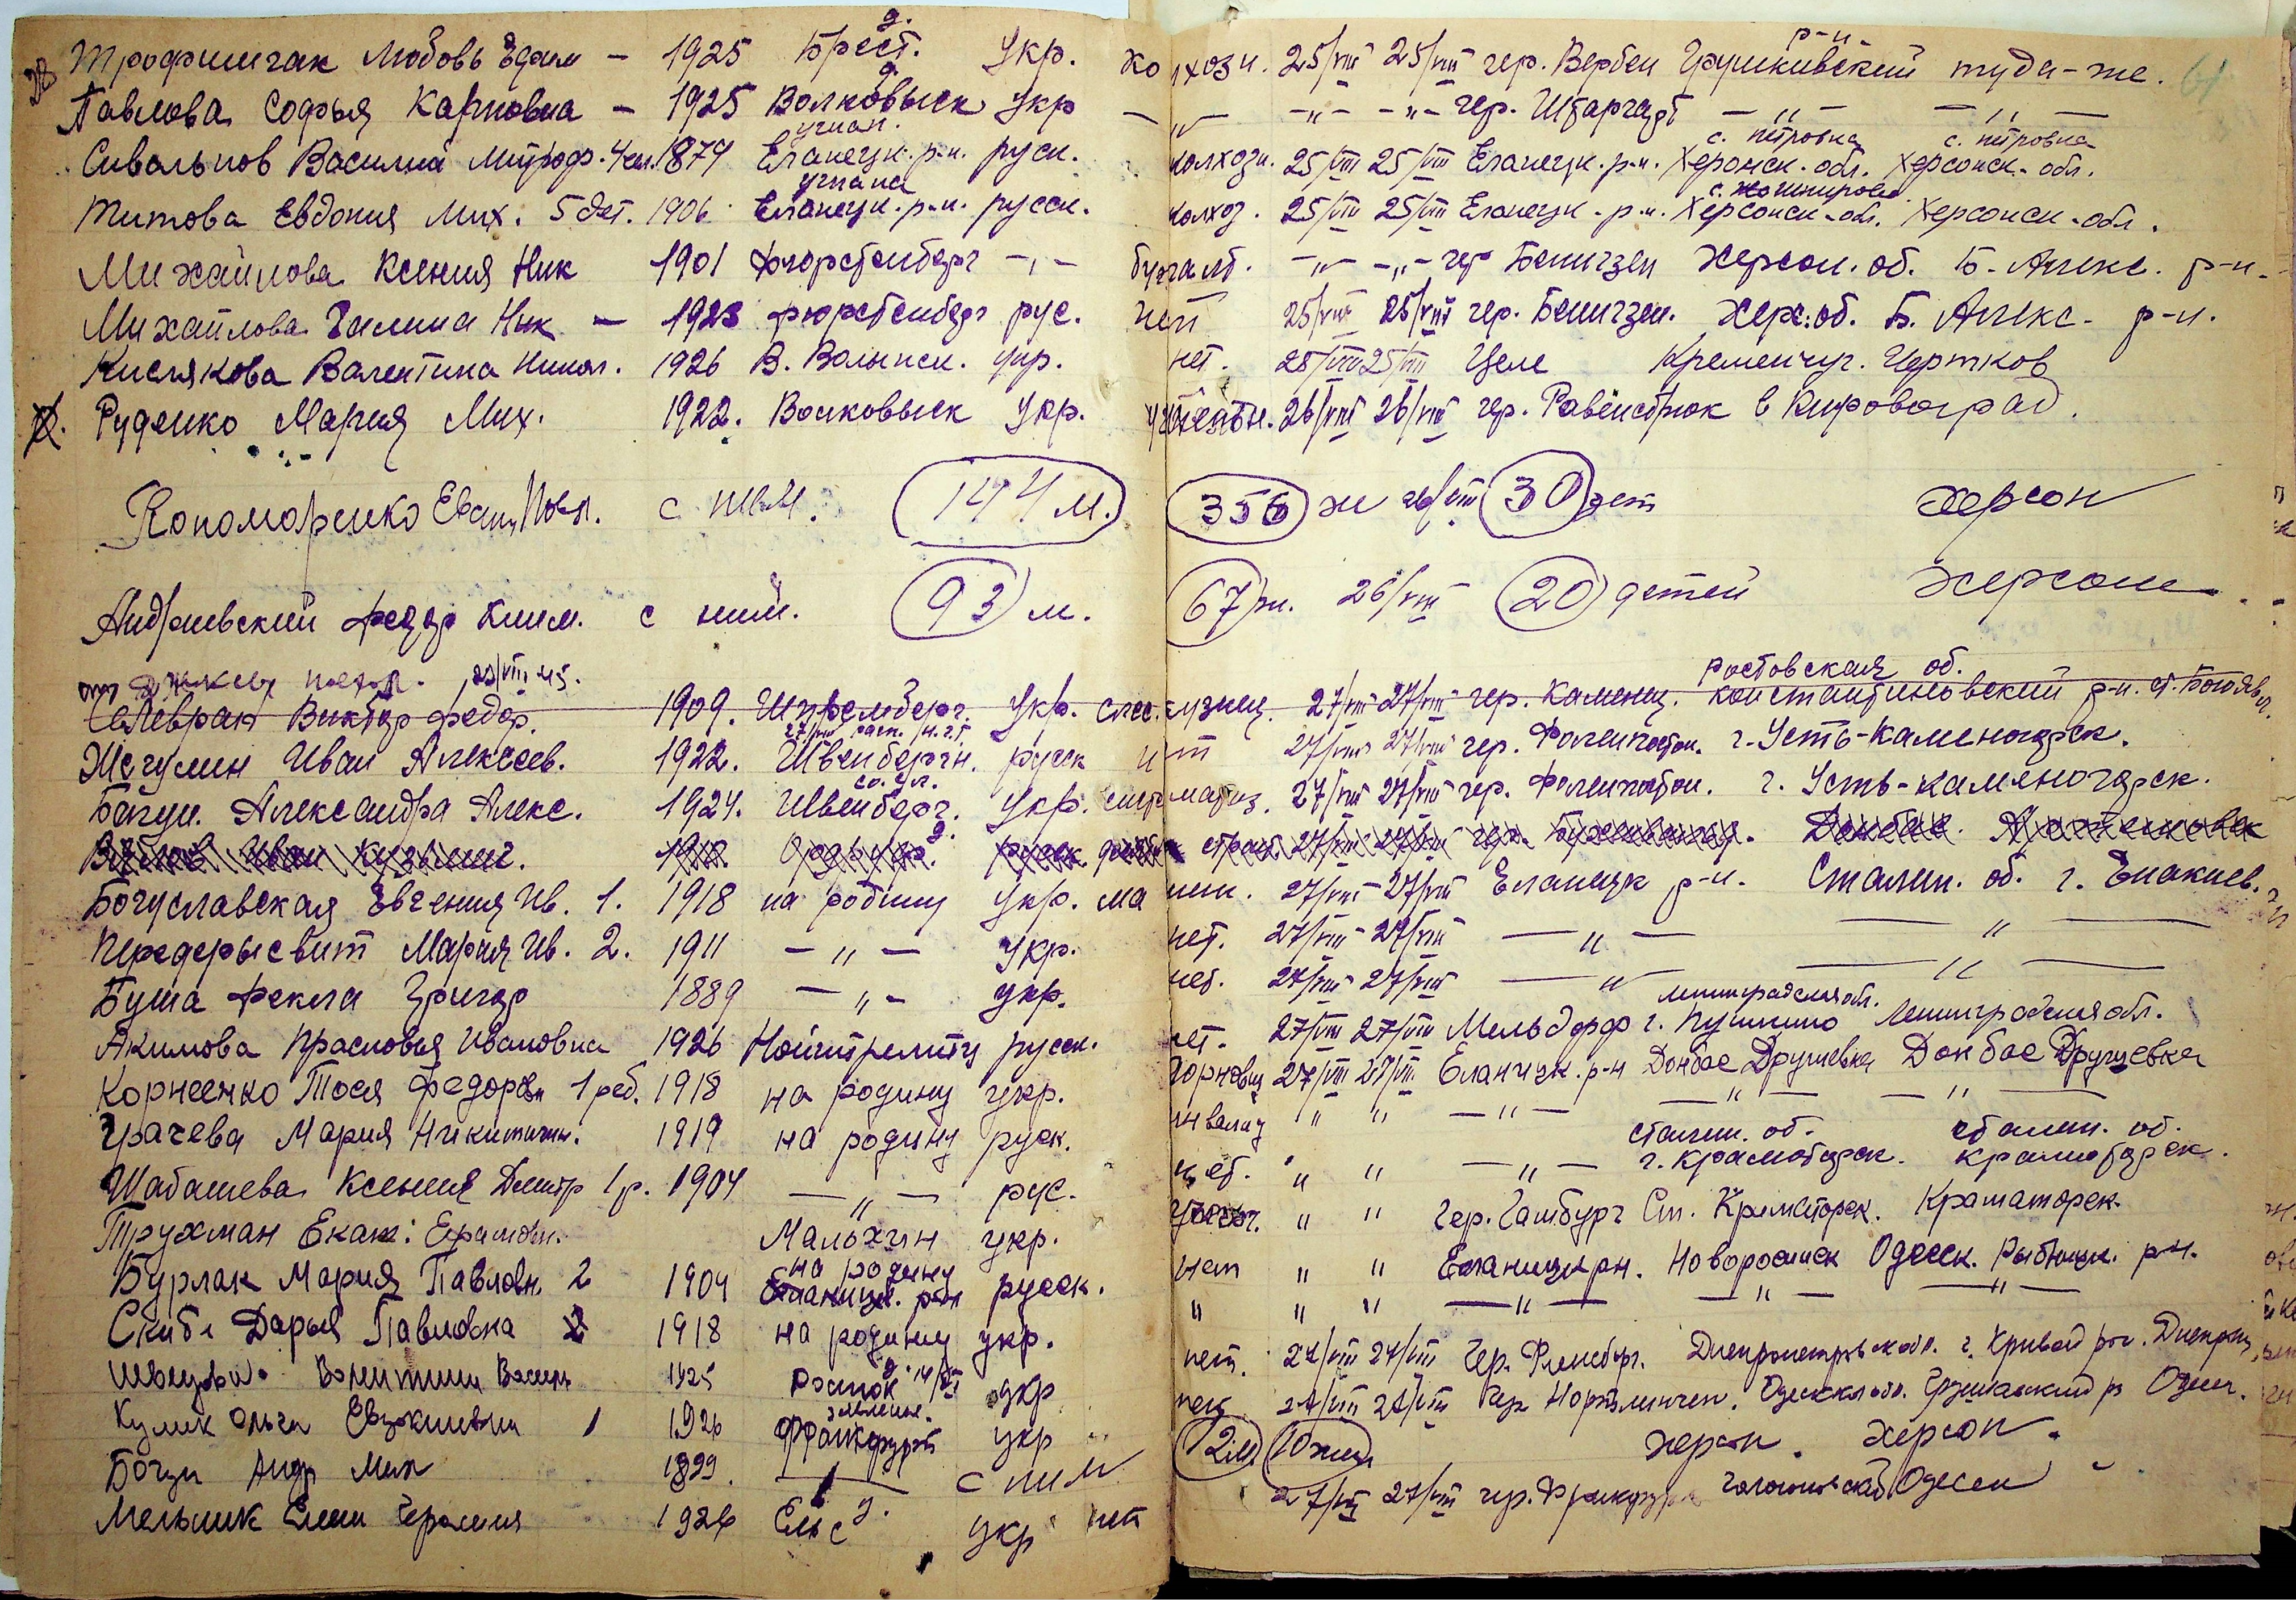 Трофимчак Любовь Ефим — 1925 Брест. г. Укр. колхозн. 25/VIII 25/VIII гер. Вербен Грушкивский р-н. туда-же. 61
Павлова Софья Карповна — 1925 Волковыск г. Укр —„— —„— —„— гер. Штаргарт —„— —„—
Сивальнов Василий Митроф. 4 чел. 1874 Еланецк. р-н. руск. колхозн. 25/VIII 25/VIII Еланецк. р-н. Херсонск. обл. с. петровка Херсонск. обл. с. петровка
Титова Евдокия Мих. 5 дет. 1906 Еланецк. р-н. русск. колхоз. 25/VIII 25/VIII Еланецк. р-н. Херсонск. обл. Херсонск. обл.
Михайлова Ксения Ник 1901 Фюрстенберг —„— бухгалт. —„— —„— гер Бенигзен Херсон. об. Б. Алекс. р-н.
Михайлова Галина Ник — 1923 Фюрстенберг рус. нет 25/VIII 25/VIII гер. Бенигзен. Херс. об. Б. Алекс. р-н.
Кислякова Валентина Никол. 1926 В. Волынск. укр. нет. 25/VIII 25/VIII Целе Кременчуг. Чертков
Руденко Мария Мих. 1922. Волковыск Укр. 26/VIII 26/VIII гер. Равенсбрюк в Кировоград.
Пономаренко Евген Павл. с ним. 144 м. 356 ж 26/VIII 30 дет Херсон
Андриевский Федор Клим. с ним. 93 м. 67 ж. 26/VIII 20 детей Херсон
1909. Укр. слес. кузнец. 27/VIII 27/VIII гер. Каменц. Ростовская об. константиновский р-н.
Жегулин Иван Алексеев. 1922. Швенберг н. русск нет 27/VIII 27/VIII гер. г. Усть-Каменогорск.
Багун. Александра Алекс. 1924. Швенберг. Укр. 27/VIII 27/VIII гер. г. Усть-каменогорск.
Богуславская Евгения Ив. 1. 1918 на родину Укр. 27/VIII 27/VIII Еланецк р-н. Сталин. об. г. Енакиев.
Передерысвит Мария Ив. 2. 1911 —„— Укр. нет. 27/VIII 27/VIII —„— —„—
Буша Фекла Григор 1889 —„— укр. нет. 27/VIII 27/VIII —„— —„—
Акимова Прасковья Ивановна 1926 Нойштрелитц русск. нет. 27/VIII 27/VIII Мельдорф г. Пушкино ленинградская обл. Ленинградская обл.
Корнеенко Тося Федоров 1 реб. 1918 на родину укр. 27/VIII 27/VIII Еланецк. р-н Донбас Дружевка Донбас Дружевка
Грачева Мария Никитичн. 1919 на родину руск. инвалид „ „ —„— —„— —„—
Шабашева Ксения Дмитр 1 р. 1904 —„— рус. нет. „ „ —„— сталин. об. г. Краматорск. сталин. об. краматорск.
Трухман Екат. Ефрамовн. Мальхин укр. „ „ Гер. Гамбург Ст. Краматорск. Краматорск.
Бурлак Мария Павловн. 2 1904 на родину Еланецк. р-он русск. нет „ „ Еланецк рн. Новороссийск Одесск. Рыбницк. рн.
Скиба Дарья Павловна 2 1918 на родину укр. „ „ „ —„— —„— —„—
Швецова Валентина Васил 1925 Росток г. укр нет. 27/VIII 27/VIII Гер. Фленсбург. Днепропетровск обл. г. Кривой рог. Днепропет
Кулик Ольга Евдокиевна 1 1926 Франкфурт укр нет 27/VIII 27/VIII Гер Одесск обл. Одесс.
Богун Андр Мих 1899. с ним 12 м 10 жен. Херсон. Херсон.
Мельник Елен 1926 Ельс г. укр нет 27/VIII 27/VIII гер. Франкфурт Одесса